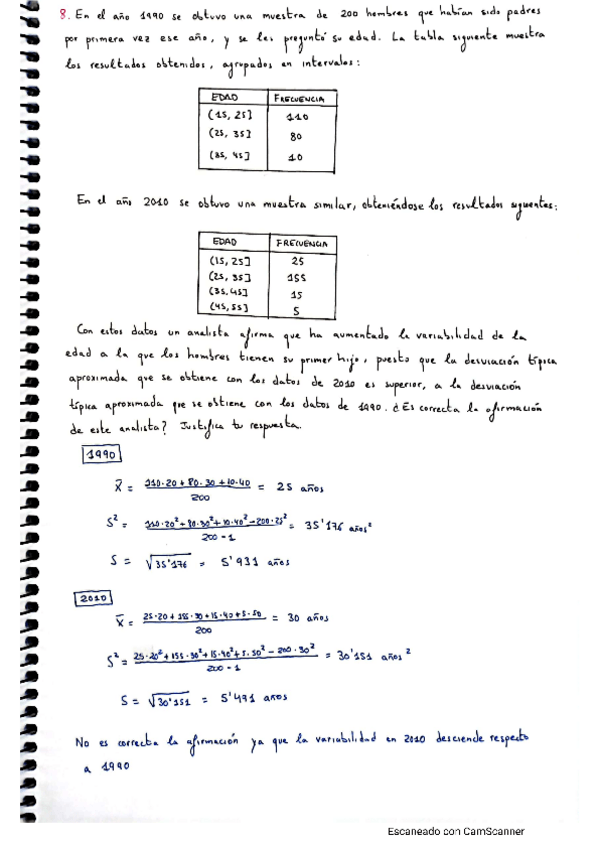 8. En el año 1990 se obtuvo una muestra de 200 hombres que habían sido padres
por primera vez ese año, y se les preguntó su edad. La tabla siguiente muestra
los resultados obtenidos, agrupados en intervalos:
EDAD FRECUENCIA
(15, 25] 110
(25, 35] 80
(35, 45] 10
En el año 2010 se obtuvo una muestra similar, obteniéndose los resultados siguientes:
EDAD FRECUENCIA
(15, 25] 25
(25, 35] 155
(35, 45] 15
(45, 55] 5
Con estos datos un analista afirma que ha aumentado la variabilidad de la
edad a la que los hombres tienen su primer hijo, puesto que la desviación típica
aproximada que se obtiene con los datos de 2010 es superior, a la desviación
típica aproximada que se obtiene con los datos de 1990. ¿Es correcta la afirmación
de este analista? Justifica tu respuesta.
1990
X̄ = 110·20 + 80·30 + 10·40 / 200 = 25 años
S² = 110·20² + 80·30² + 10·40² - 200·25² / 200 - 1 = 35'176 años²
S = √35'176 = 5'931 años
2010
X̄ = 25·20 + 155·30 + 15·40 + 5·50 / 200 = 30 años
S² = 25·20² + 155·30² + 15·40² + 5·50² - 200·30² / 200 - 1 = 30'151 años²
S = √30'151 = 5'491 años
No es correcta la afirmación ya que la variabilidad en 2010 desciende respecto
a 1990
Escaneado con CamScanner